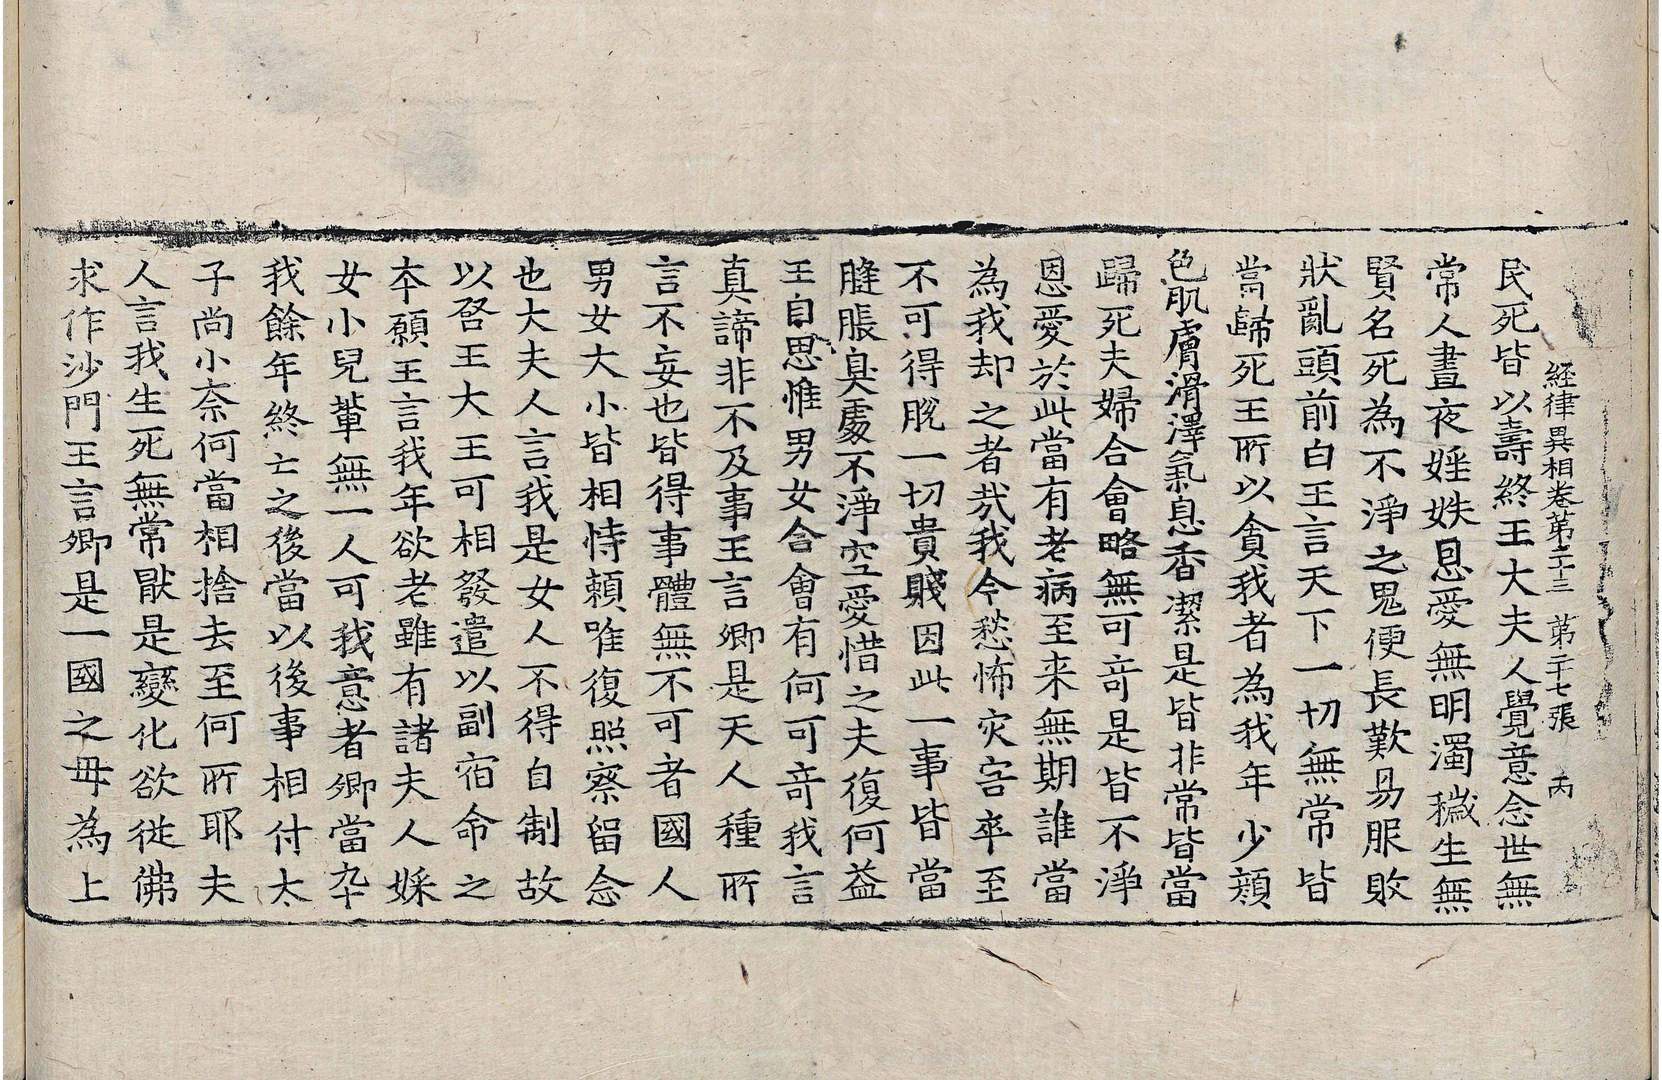 経律異相卷第二十三 第二十七張 丙
民死皆以壽終王大夫人覺意念世無
常人晝夜婬妷恩愛無明濁穢生無
賢名死為不淨之鬼便長歎易服敗
狀亂頭前白王言天下一切無常皆
當歸死王所以貪我者為我年少顏
色肌膚滑澤氣息香潔是皆非常皆當
歸死夫婦合會略無可奇是皆不淨
恩愛於此當有老病至来無期誰當
為我却之者㦲我今愁怖灾害卒至
不可得脫一切貴賤因此一事皆當
膖脹臭處不淨空愛惜之夫復何益
王自思惟男女合會有何可奇我言
真諦非不及事王言卿是天人種所
言不妄也皆得事體無不可者國人
男女大小皆相恃頼唯復照察留念
也大夫人言我是女人不得自制故
以啓王大王可相發遣以副宿命之
本願王言我年欲老雖有諸夫人婇
女小兒軰無一人可我意者卿當九十
我餘年終亡之後當以後事相付太
子尚小奈何當相捨去至何所耶夫
人言我生死無常猒是變化欲從佛
求作沙門王言卿是一國之母為上